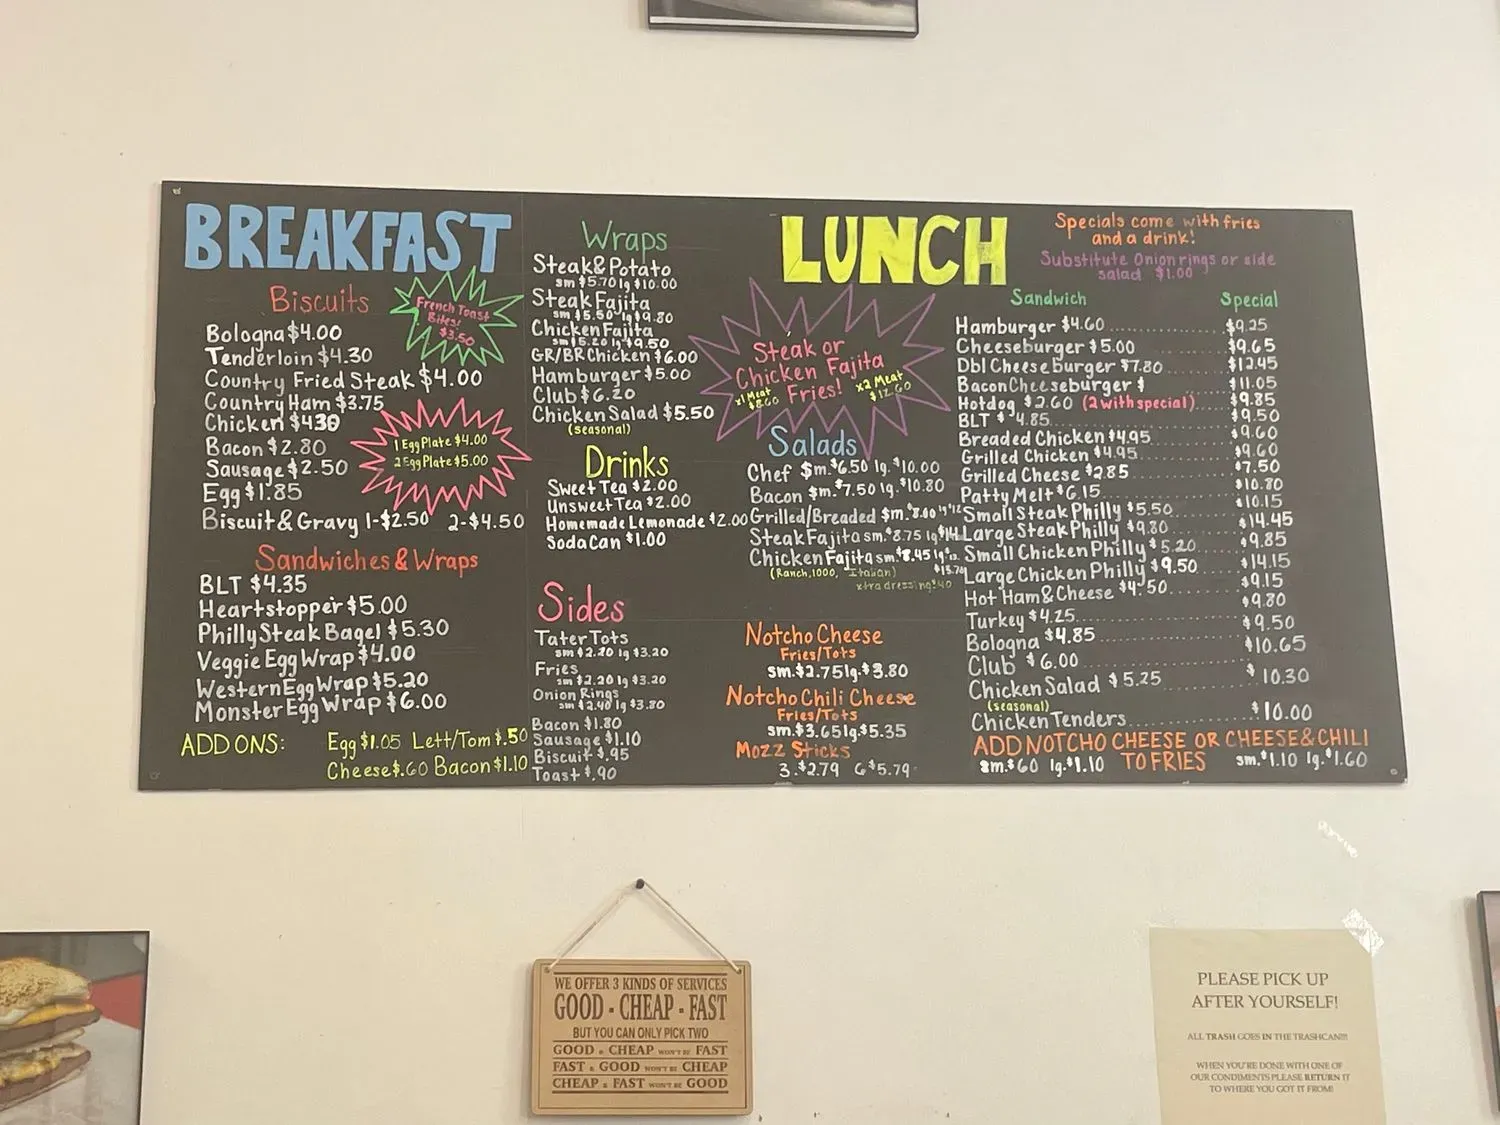 BREAKFAST
Biscuits
Bologna $4.00
Tenderloin $4.30
Country Fried Steak $4.00
Country Ham $3.75
Chicken $4.30
Bacon $2.80
Sausage $2.50
Egg $1.85
Biscuit & Gravy 1-$2.50 2-$4.50
French Toast
Bites!
$3.50
1 Egg Plate $4.00
2 Egg Plate $5.00
Sandwiches & Wraps
BLT $4.35
Heartstopper $5.00
Philly Steak Bagel $5.30
Veggie Egg Wrap $4.00
Western Egg Wrap $5.20
Monster Egg Wrap $6.00
ADD ONS: Egg $1.05 Lett/Tom $.50
Cheese $.60 Bacon $1.10
Wraps
Steak & Potato
sm $5.70 lg $10.00
Steak Fajita
sm $5.50 lg $9.80
Chicken Fajita
sm $5.20 lg $9.50
GR/BR Chicken $6.00
Hamburger $5.00
Club $6.20
Chicken Salad $5.50
(seasonal)
Drinks
Sweet Tea $2.00
Unsweet Tea $2.00
Homemade Lemonade $2.00
Soda Can $1.00
Sides
Tater Tots
sm $2.20 lg $3.20
Fries
sm $2.20 lg $3.20
Onion Rings
sm $2.40 lg $3.80
Bacon $1.80
Sausage $1.10
Biscuit $.95
Toast $.90
LUNCH
Steak or
Chicken Fajita
Fries!
x1 Meat
$8.60
x2 Meat
$12.60
Salads
Chef $m. $6.50 lg. $10.00
Bacon $m. $7.50 lg. $10.80
Grilled/Breaded $m. $8.00
Steak Fajita sm. $8.75
Chicken Fajita sm. $8.45
(Ranch, 1000, Italian)
xtra dressing $.40
Notcho Cheese
Fries/Tots
sm. $2.75 lg. $3.80
Notcho Chili Cheese
Fries/Tots
sm. $3.65 lg. $5.35
Mozz Sticks
3. $2.79 6 $5.79
Specials come with fries
and a drink!
Substitute Onion rings or side
salad $1.00
Sandwich Special
Hamburger $4.60 $9.25
Cheeseburger $5.00 $9.65
Dbl Cheeseburger $7.80 $12.45
Bacon Cheeseburger $ $11.05
Hotdog $2.60 (2 with special) $9.85
BLT $4.85 $9.50
Breaded Chicken $4.95 $9.60
Grilled Chicken $4.95 $9.60
Grilled Cheese $2.85 $7.50
Patty Melt $6.15 $10.80
Small Steak Philly $5.50 $10.15
Large Steak Philly $9.80 $14.45
Small Chicken Philly $5.20 $9.85
Large Chicken Philly $9.50 $14.15
Hot Ham & Cheese $4.50 $9.15
Turkey $4.25 $9.80
Bologna $4.85 $9.50
Club $6.00 $10.65
Chicken Salad $5.25 $10.30
(seasonal)
Chicken Tenders $10.00
ADD NOTCHO CHEESE OR CHEESE & CHILI
sm. $60 lg. $1.10 TO FRIES sm. $1.10 lg. $1.60
WE OFFER 3 KINDS OF SERVICES
GOOD - CHEAP - FAST
BUT YOU CAN ONLY PICK TWO
GOOD & CHEAP WON'T BE FAST
FAST & GOOD WON'T BE CHEAP
CHEAP & FAST WON'T BE GOOD
PLEASE PICK UP
AFTER YOURSELF!
ALL TRASH GOES IN THE TRASHCAN!!!
WHEN YOU'RE DONE WITH ONE OF
OUR CONDIMENTS PLEASE RETURN IT
TO WHERE YOU GOT IT FROM!